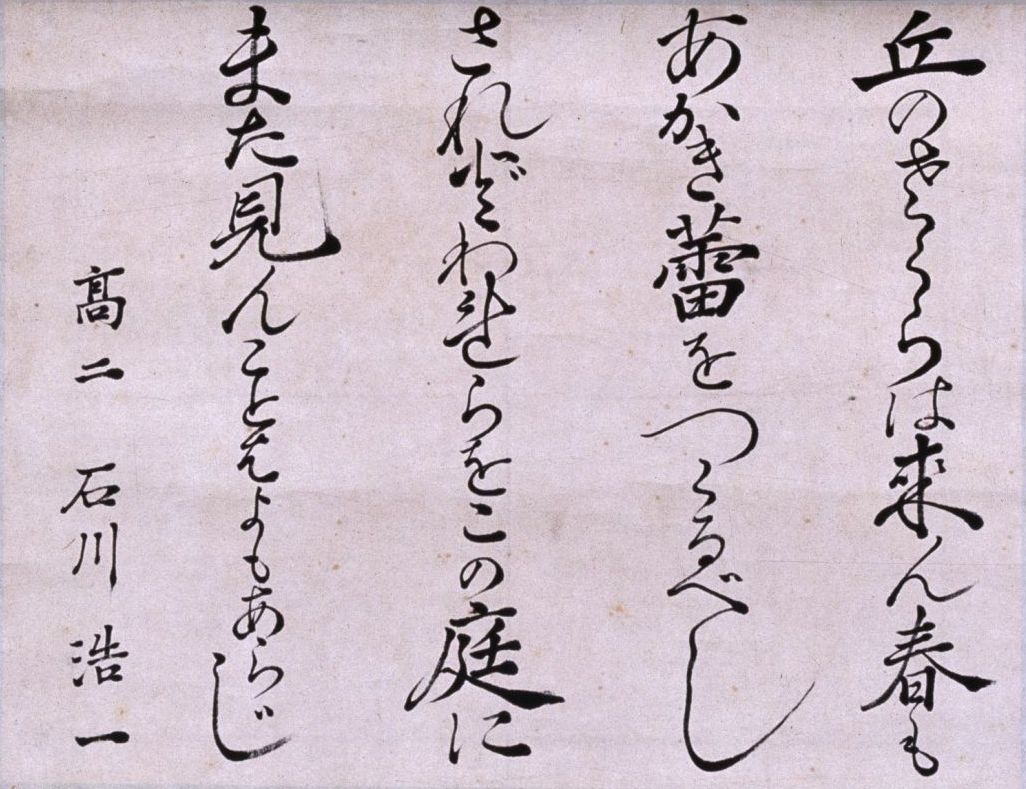 丘のさくらは来ん春も
あかき蕾をつくるべし
されどわれらをこの庭に
また見んことはよもあらじ
高二 石川浩一